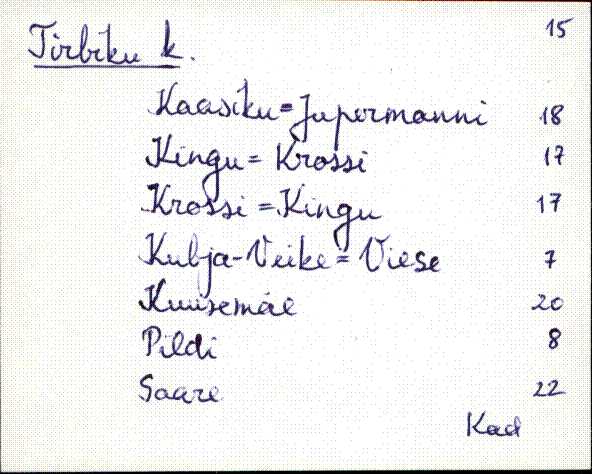 Tirbiku k. 15
Kaasiku = Jupermanni 18
Kingu = Krossi 17
Krossi = Kingu 17
Kubja-Veike = Viese 7
Kuusemäe 20
Pildi 8
Saare 22
Kad